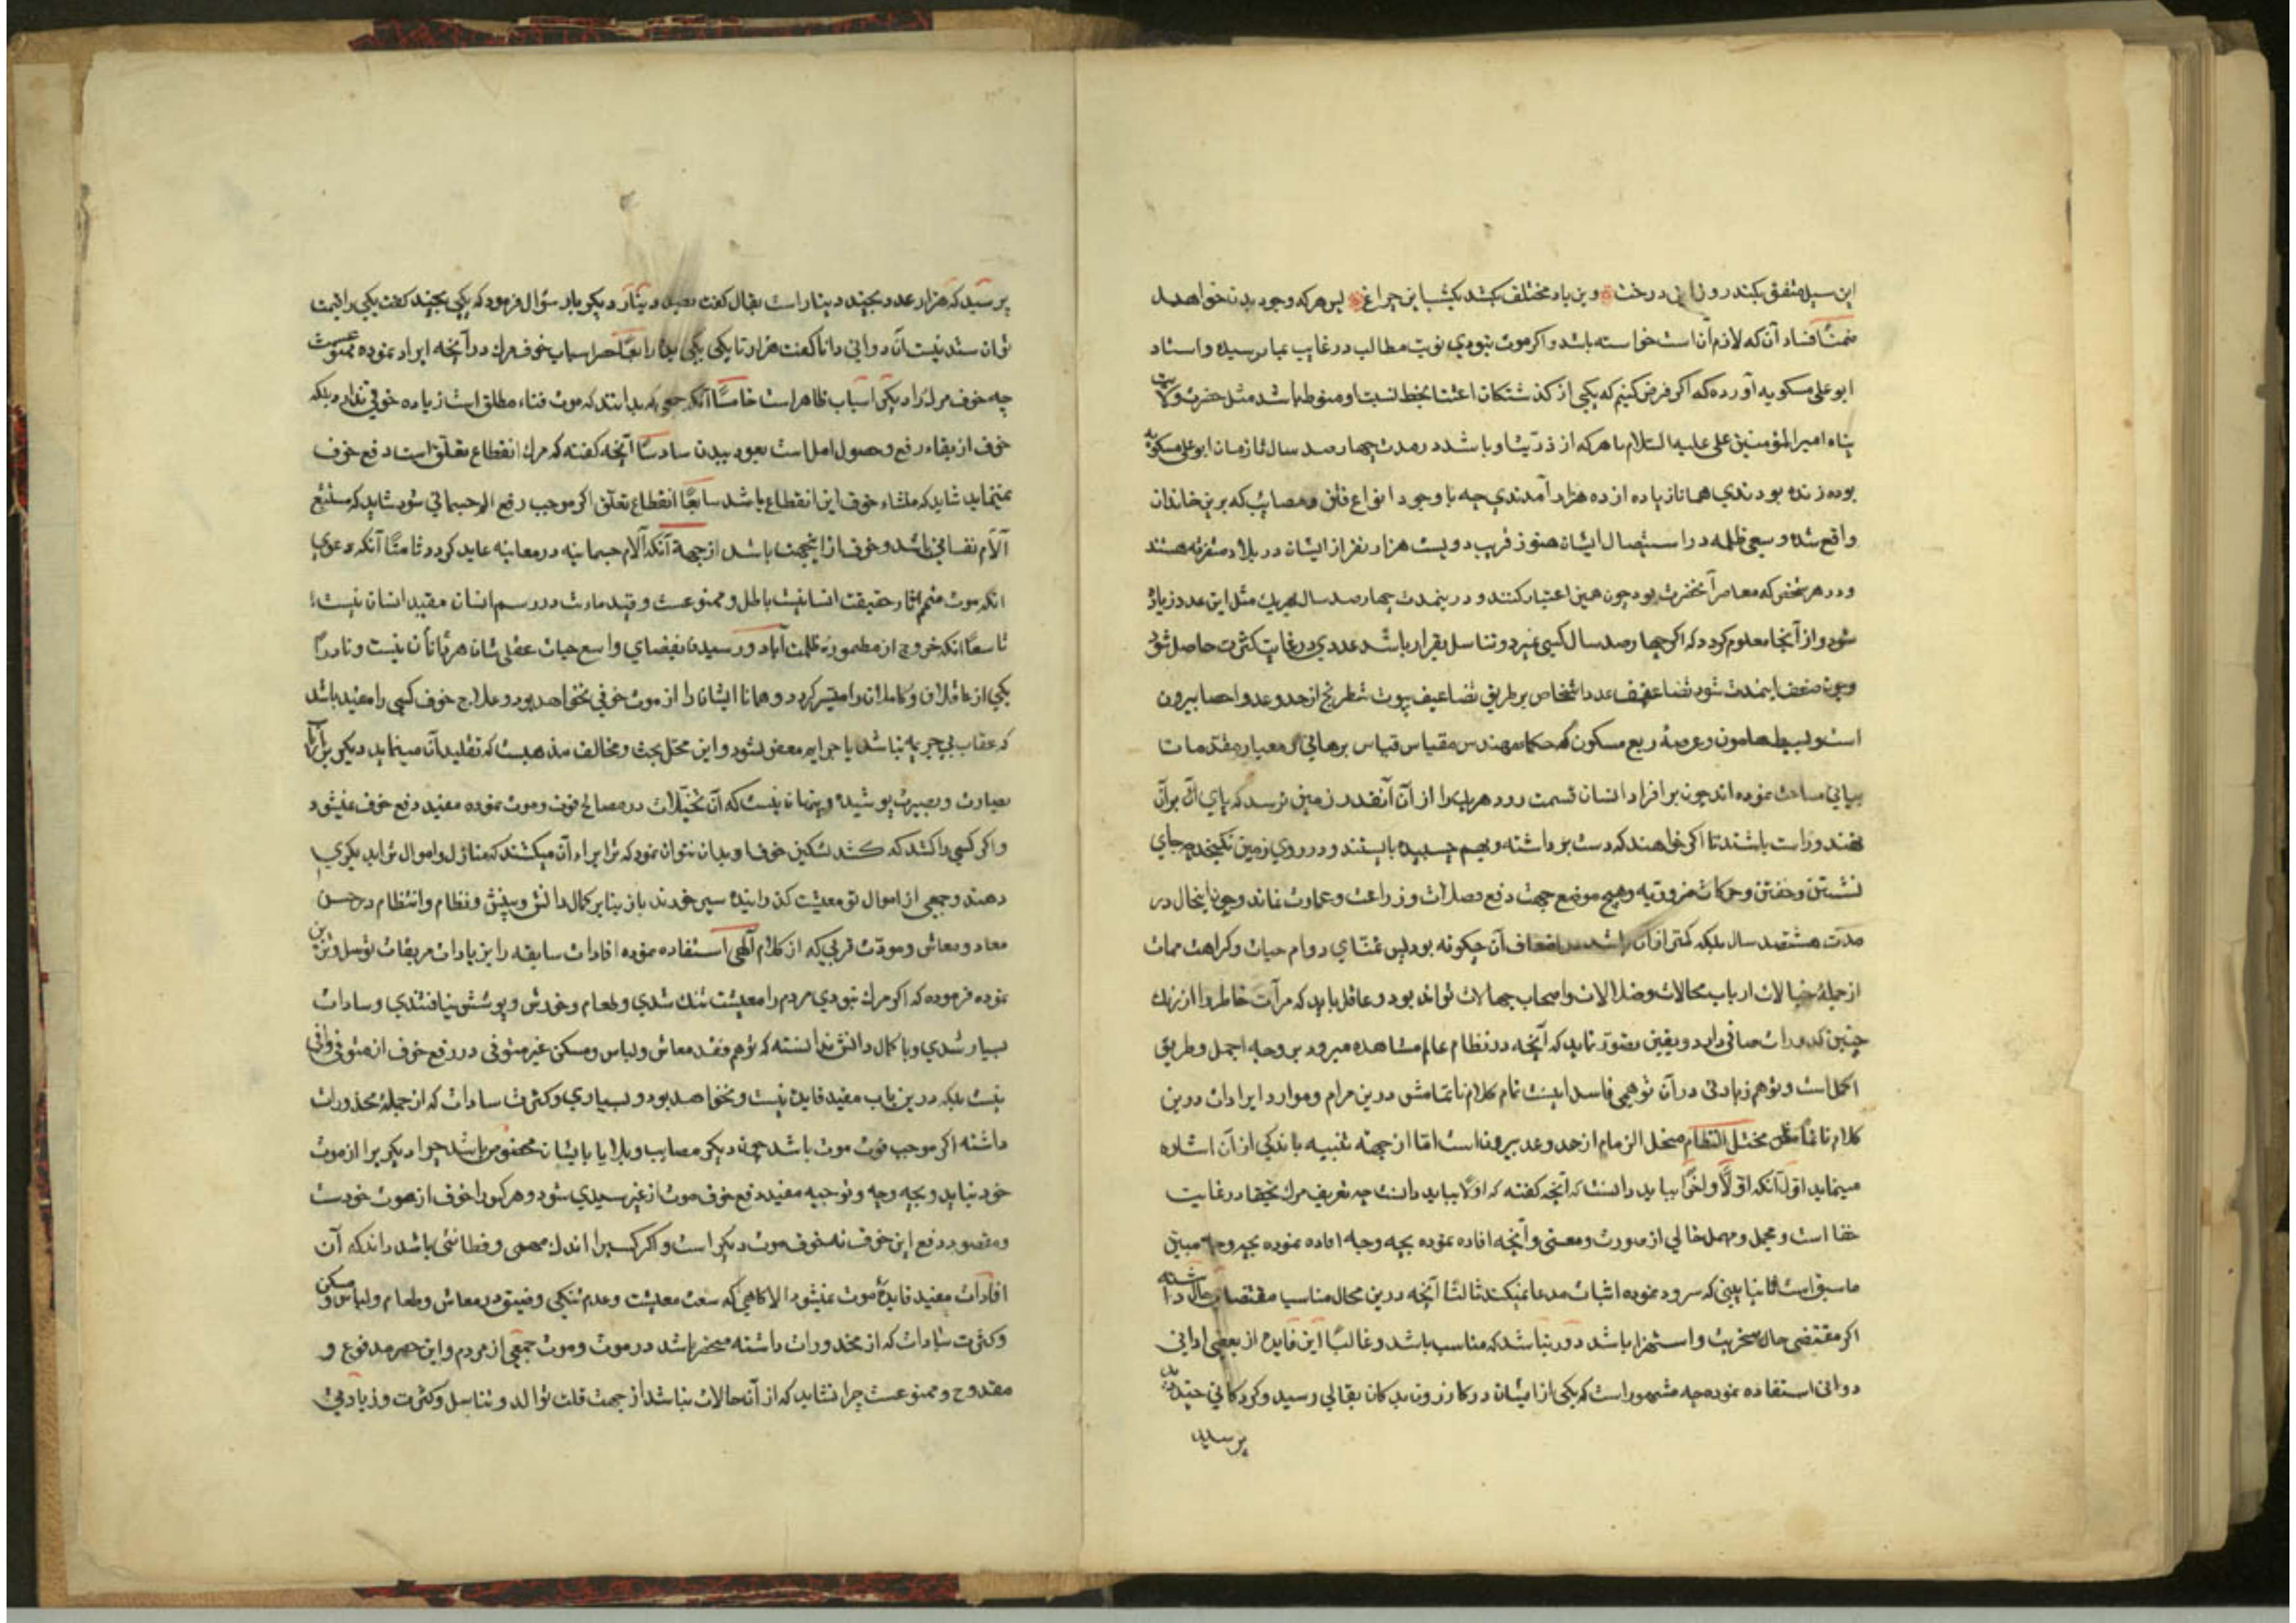 این سیل متفق بکند روزی این درخت وین باد مختلف بکشد یکشب این چراغ پس هرکه وجود بدن خواهد
ضمناً فساد آن که لازم آن است خواسته باشد و اکر موت نبودی نوبت مطالب در غایب بما نرسیده و استاد
ابو علی مسکویه آورده که اکر فرض کنیم که یکی از کذشتکان اعتنا بحفظ نسبت او منوط باشد مثل حضرت ولایت
پناه امیر المؤمنین علی علیه السلام با هرکه از ذریت او باشد در مدت چهار صد سال تا زمان ابو علی مسکویه
بوده زنده بودندی همانا زیاده از ده هزار آمدندی چه با وجود انواع فتن و مصایب که برین خاندان
واقع شده و سعی ظلمه در استیصال ایشان هنوز قریب دویست هزار نفر از ایشان در بلاد متفرقه هستند
و در هر شخصی که معاصر آنحضرت بود چون همین اعتبار کنند و درینمدت چهار صد سال بهریک مثل این عدد زیاد
شود و از آنجا معلوم کردد که اکر چهار صد سال کسی نمیرد و تناسل بقرار باشد عددی در غایت کثرت حاصل شود
و چون ضعف اینمدت شود تضاعیف عدد اشخاص بر طریق تضاعیف بیوت شطرنج از حد و عد و احصا بیرون
است و بسیط هامون و عرصهٔ ربع مسکون که حکماء مهندس بمقیاس قیاس برهانی و معیار مقدمات
بیانی مساحت نموده اند چون بر افراد انسان قسمت رود هریک را از آن آنقدر زمین نرسد که پای آن بر آن
نهند و راست باشند تا اکر خواهند که دست بر داشته و بهم چسبیده بایستند و در روی زمین نکنجند چه جای
نشستن و خفتن و حرکات ضروریه و هیچ موضع جهت دفع فضلات و زراعت و عمارت نماند و چون اینحال در
مدت هشتصد سال بلکه کمتر از آن باشد پس اضعاف آن چکونه بود پس تمنای دوام حیات و کراهت ممات
از جملهٔ خیالات ارباب محالات و ضلالات و اصحاب جهالات تواند بود و عاقل باید که مرآت خاطر را از زنک
چنین کدورات صافی دارد و یقین تصور نماید که آنچه در نظام عالم مشاهده میرود بر وجه اجمل و طریق
اکمل است و توهم زیادتی در آن توهمی فاسد اینست تمام کلام ناتمامش درین مرام و موارد ایرادات درین
کلام مختل النظام منحل الزمام از حد و عد بیرون است اما از جهته تنبیه باندکی از آن اشاره
مینماید اول آنکه اولاً و آخراً بباید دانست که آنچه کفته که اولاً بباید دانست چه تعریف مرک تحقیقا در غایت
خفا است و مجمل و مهمل خالی از صورت و معنی و آنچه افاده نموده بچه وجه افاده نموده بچه وجه مبین
ما سبق است ثانیا بیتی که سرود نموده اثبات مدعا نمیکند ثالثا آنچه درین محال مناسب مقتضای حال داشته
اکر مقتضی حال سخریت و استهزا باشد دور نباشد که مناسب باشد و غالبًا این فایده از بعضی ادانی
دوانی استفاده نموده چه مشهور است که یکی از ایشان در کازرون بدکان بقالی رسید و کردکانی چند
پرسید
پرسید که هزار عدد بچند دینار است بقال کفت بصد دینار دیکر بار سؤال فرمود که یکی بچند کفت یکی را قیمت
نتوان ستد نیست آن دوانی دانا کفت هزار تا یکی یکی بده رابعًا حصر اسباب خوف مرک در آنچه ایراد نموده ممنوعست
چه خوف مرک را دیکر اسباب ظاهر است خامسًا آنکه جمعی که بدانند که موت فناء مطلق است زیاده خوفی ندارد بلکه
خوف از بقاء رفع و حصول امل است بعود ببدن سادسًا آنچه کفته که مرک انقطاع تعلق است دفع خوف
نمینماید شاید که منشاء خوف این انقطاع باشد سابعًا انقطاع تعلق اکر موجب رفع الم جسمانی شود شاید که مستتبع
آلام نفسانی باشد و خوف از اینجهت باشد از جهة آنکه آلام جسمانیه در معاینه عاید کردد ثامنًا آنکه دعوی
آنکه موت متمم آثار حقیقت انسانیت باطل و ممنوعست و قید مائت در رسم انسان مقید انسان نیست
تاسعًا آنکه خروج از مطمورهٔ ظلمت آباد و رسیدن بفضای واسع حیات عقلی شان هر نادان نیست و نادرًا
یکی از عاقلان و کاملان را میسر کردد و همانا ایشان را از موت خوفی نخواهد بود و علاج خوف کسی را مفید باشد
که عقاب بی جریمه نباشد یا جرایم معفو نشود و این محتل بحث و مخالف مذهبست که تقلید آن مینماید دیکر بر ارباب
بصارت و بصیرت پوشیده و پنهان نیست که آن تخیلات در مصالح فوت و موت نموده مفید دفع خوف نمیشود
و اکر کسی را کشد که کشد تسکین خوف او بدان نتوان نمود که ترا برای آن میکشند که منازل و اموال ترا بدیکری
دهند و جمعی از اموال تو معیشت کذرانیده سیر خورند باز بنابر کمال دانش و بینش و نظام و انتظام در حسن
معاد و معاش و مودت قربی که از کلام الهی استفاده نموده افادات سابقه را بزیادات مزیفات توسل و تزیین
نموده فرموده که اکر مرک نبودی مردم را معیشت تنک شدی و طعام و خورش و پوشش نیافتندی و سادات
بسیار شدی و با کمال دانش ندانسته که توهم فقد معاش و لباس و مسکن غیر متوفی در رفع خوف از متوفی وافی
نیست بلکه درین باب مفید فایده نیست و نخواهد بود و بسیاری و کثرت سادات که از جملهٔ محذورات
داشته اکر موجب فوت موت باشد چون دیکر مصایب و بلایا بایشان مخصوص باشد چرا دیکریرا از موت
خود نیاید و بچه وجه و توجیه مفید دفع خوف موت از غیر سیدی شود و هر کس را خوف از موت خودست
و مقصود دفع این خوف نه خوف موت دیکر است و اکر کسیرا اندک فهمی و فطانتی باشد داند که آن
افادات مفید فایدهٔ موت نمیشود الا کاهی که سعت معیشت و عدم تنکی و ضیق در معاش و طعام و لباس و مسکن
و کثرت سادات که از محذورات داشته منحصر باشد در موت و موت جمعی از مردم و این حصر مدفوع و
مقدوح و ممنوعست چرا نشاید که از آن حالات نباشد از جهت قلت توالد و تناسل و کثرت و زیادتی